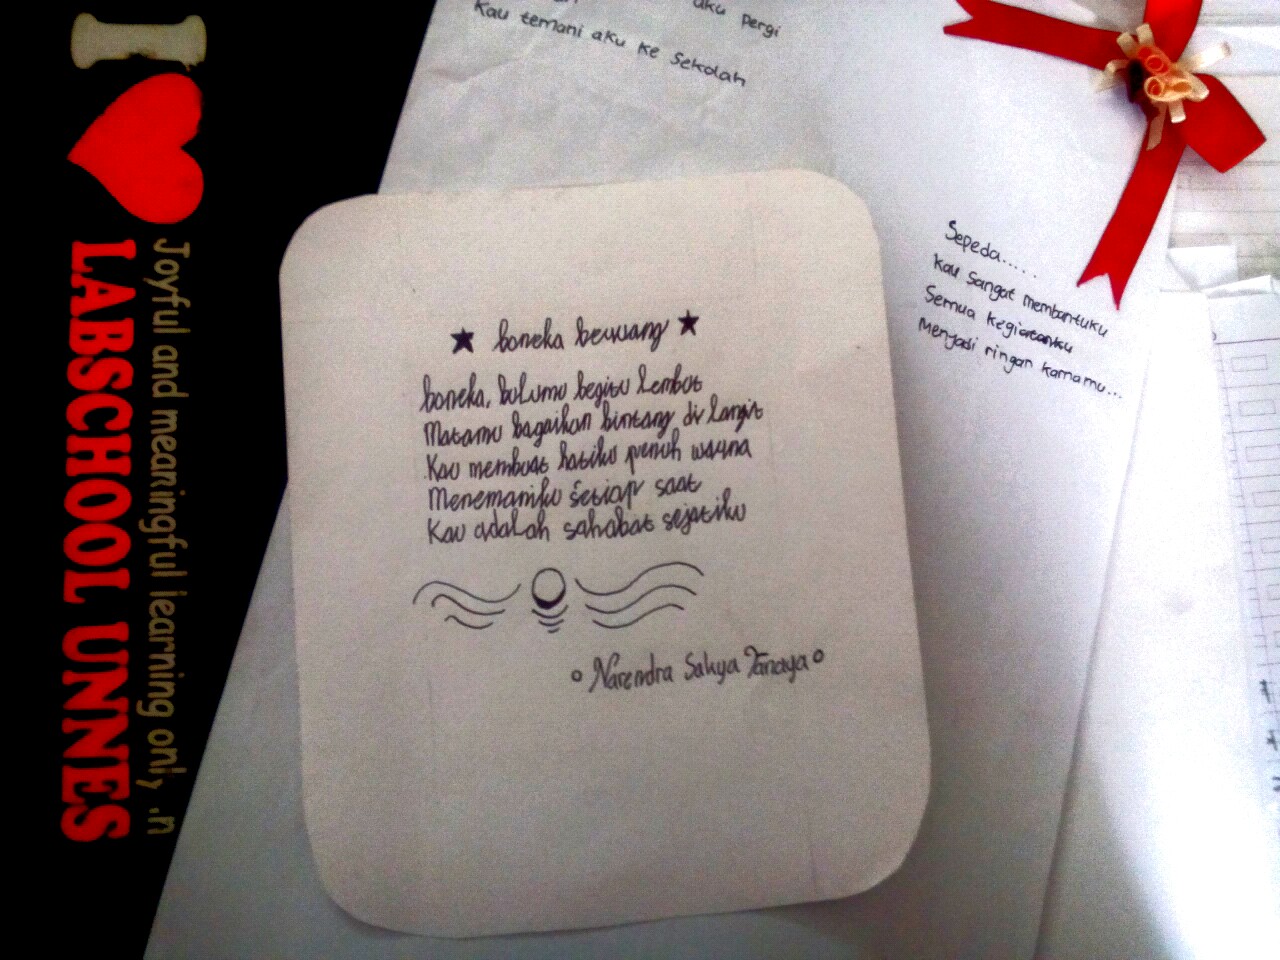 I
LABSCHOOL UNNES
Joyful and meaningful learning only .n
aku pergi
Kau temani aku ke Sekolah
Sepeda.....
Kau sangat membantuku
Semua kegiatanku
Menjadi ringan karnamu...
★ boneka beruang ★
boneka, bulumu begitu lembut
Matamu bagaikan bintang di langit
Kau membuat hatiku penuh warna
Menemaniku setiap saat
Kau adalah sahabat sejatiku
Narendra Sakya Tanaya